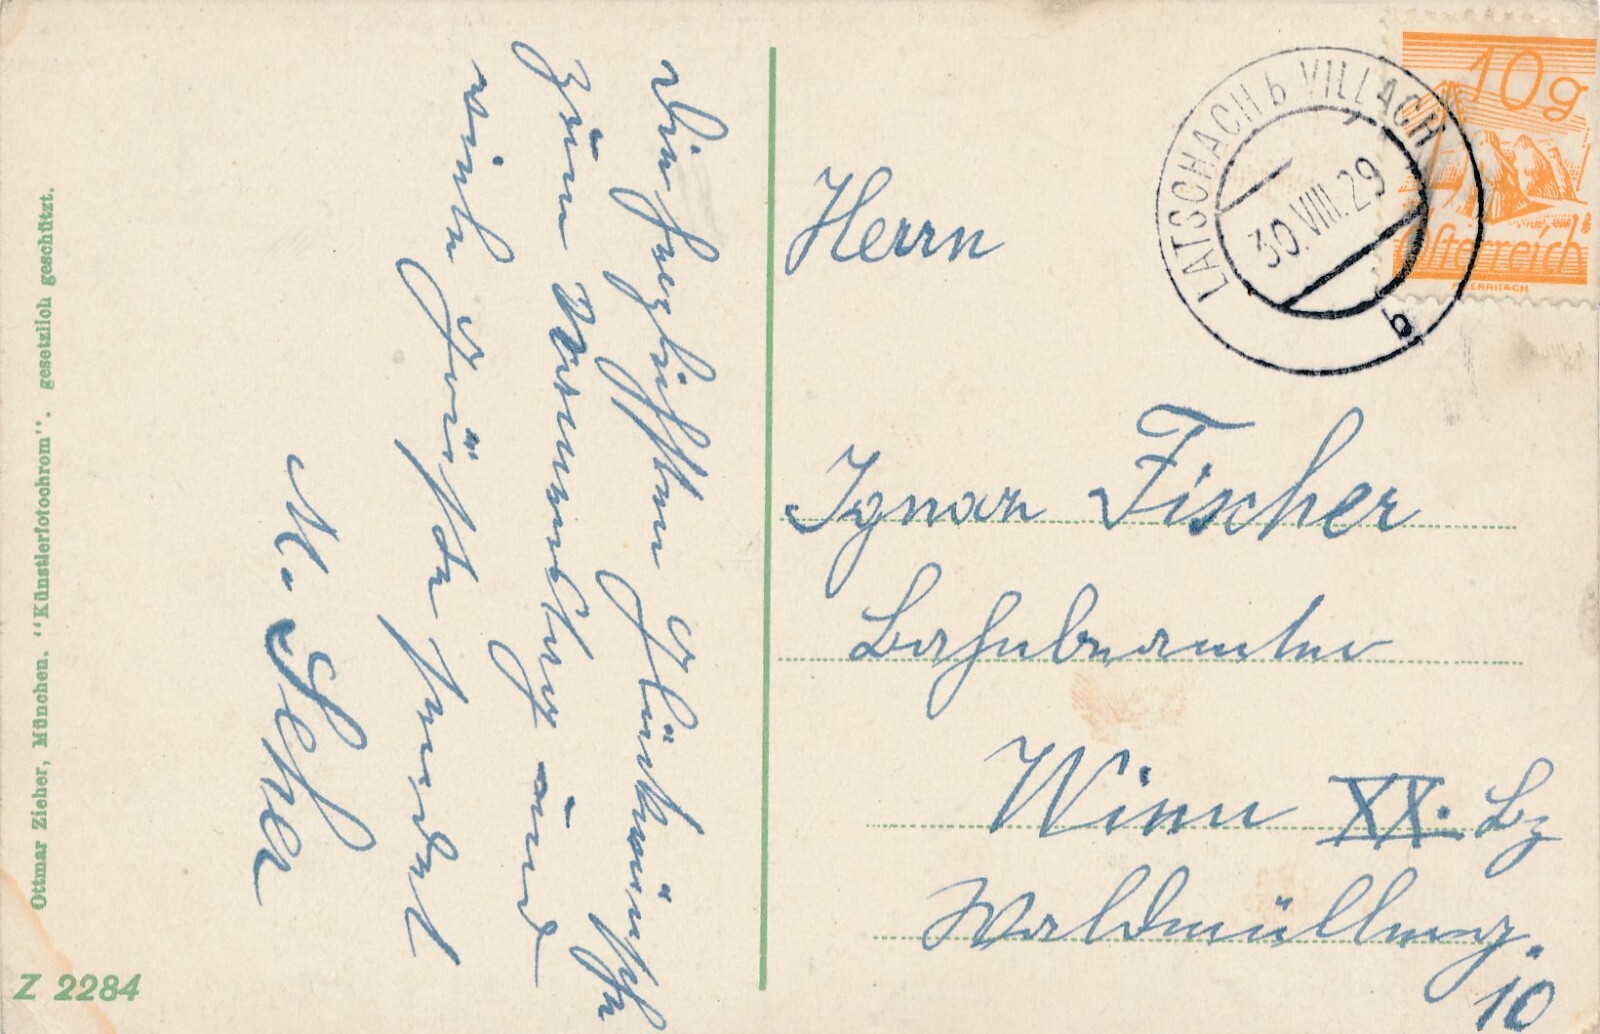 Die herzlichsten Glückwünsche
zum Namenstag und
viele Grüße sendet
M.
Herrn
Ignaz Fischer
Bahnbeamter
Wien XX. Bz
Waldmüllerg.
10
LATSCHACH b VILLACH
30.VIII.29
b
10g
Österreich
Ottmar Zieher, München. "Künstlerfotochrom". gesetzlich geschützt.
Z 2284